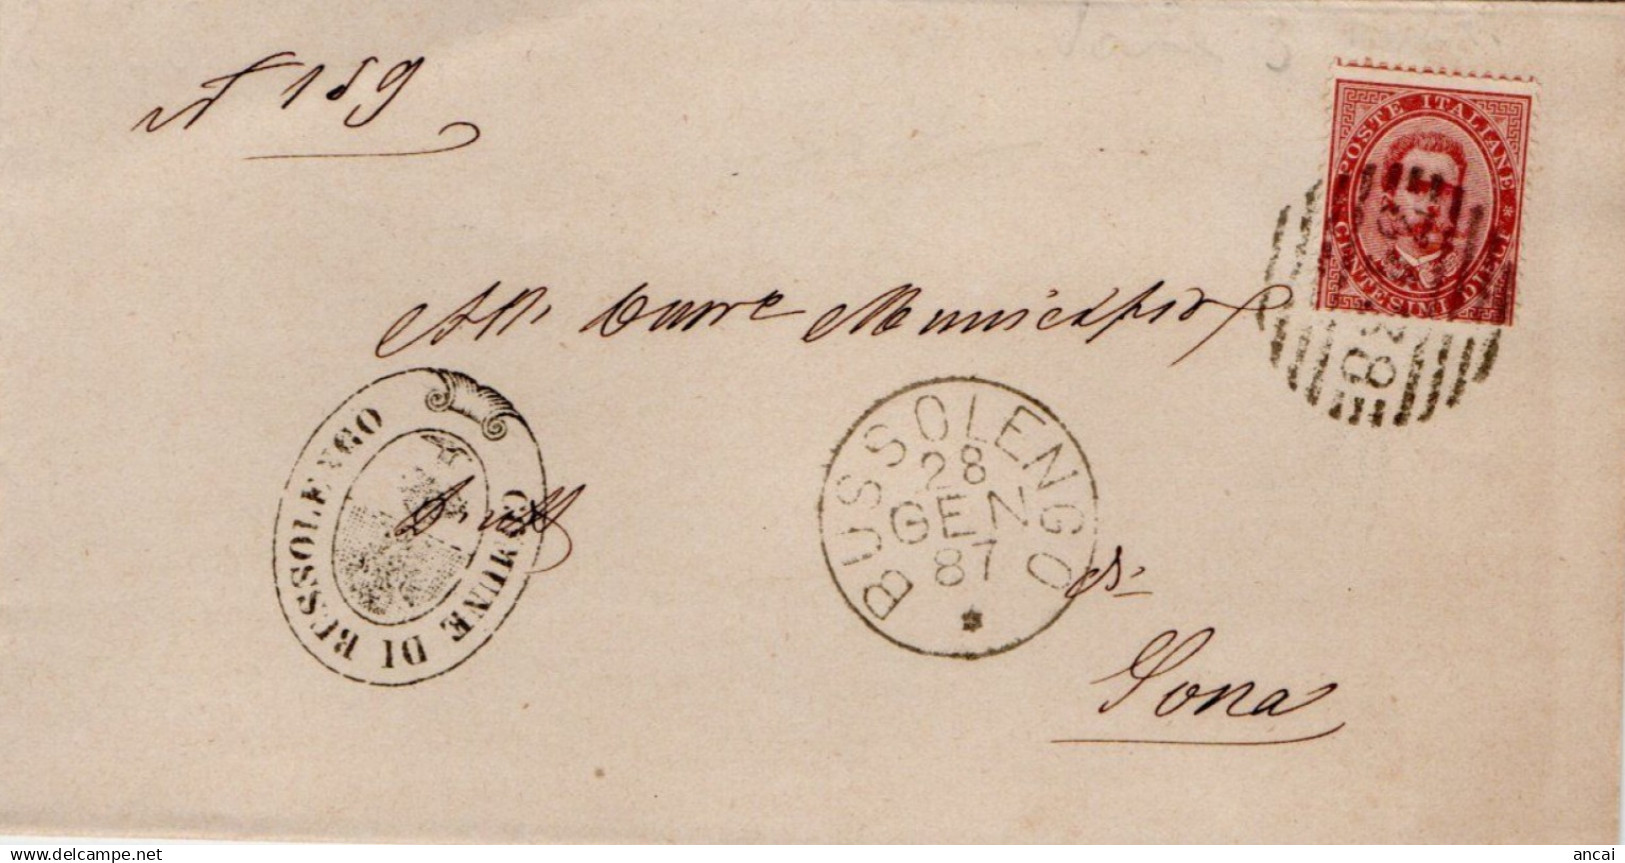 N 159
POSTE ITALIANE * CENTESIMI DIECI *
All' Onor.e Municipio
COMUNE DI BUSSOLENGO
BUSSOLENGO
28
GEN
87
di
Sona
ancai